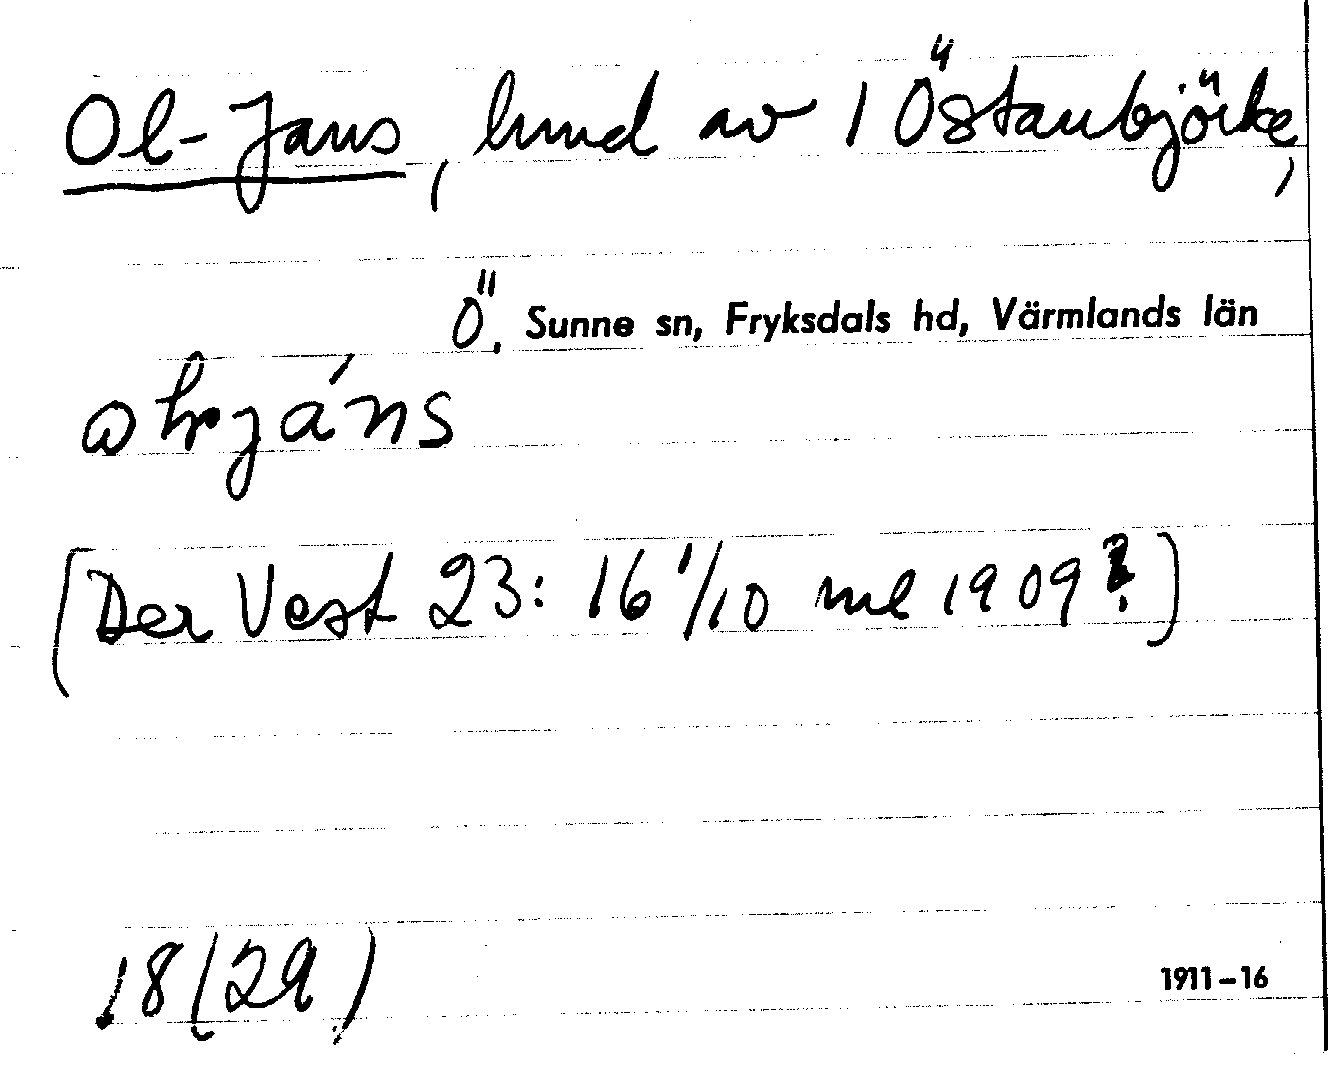 Ol-Jans, hmd av 1 Östanbjörke,
Ö. Sunne sn, Fryksdals hd, Värmlands län
jáns
[Der Vest 23: 16 1/10 mel 1909?]
18(29)
1911-16